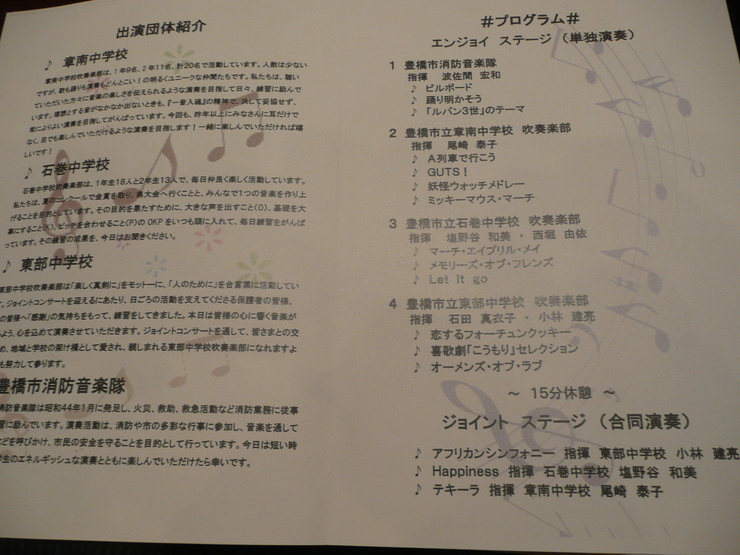 出演団体紹介
♪ 章南中学校
章南中学校吹奏楽部は、1年9名、2年11名、計20名で活動しています。人数は少ない
ですが、歌も踊りも演奏もどんとこい！の明るくユニークな仲間たちです。私たちは、聴い
ていただいた方々に音楽の楽しさを伝えられるような演奏を目指して日々、練習に励んで
います。理想とする音がなかなか出ないときも、「一音入魂」の精神で、決して妥協せず、
常によりよい演奏を目指してがんばっています。今回も、昨年以上にみなさんに耳だけで
なく、目でも楽しんでいただけるような演奏を目指します！一緒に楽しんでいただければ嬉
しいです！
♪ 石巻中学校
石巻中学校吹奏楽部は、1年生18人と2年生13人で、毎日仲良く楽しく活動しています。
私たちは、夏のコンクールで金賞を取り、県大会へ行くことと、みんなで1つの音楽を作り上
げることを目的としています。その目的を果たすために、大きな声を出すこと(O)、基礎を大
事にすること(K)、ピッチを合わせること(P)の OKP をいつも頭に入れて、毎日練習をがんば
っています。その練習の成果を、今日はお聞きください。
♪ 東部中学校
東部中学校吹奏楽部は「楽しく真剣に」をモットーに、「人のために」を合言葉に活動してい
す。ジョイントコンサートを迎えるにあたり、日ごろの活動を支えてくださる保護者の皆様、
の皆様へ「感謝」の気持ちをもって、練習をしてきました。本日は皆様の心に響く音楽が
よう、心を込めて演奏させていただきます。ジョイントコンサートを通して、皆さまとの交
め、地域と学校の架け橋として愛され、親しまれる東部中学校吹奏楽部になれますよ
も努力して参ります。
豊橋市消防音楽隊
消防音楽隊は昭和44年1月に発足し、火災、救助、救急活動など消防業務に従事
習に励んでいます。演奏活動は、消防や市の多彩な行事に参加し、音楽を通して
などを呼びかけ、市民の安全を守ることを目的として行っています。今日は短い時
学生のエネルギッシュな演奏とともに楽しんでいただけたら幸いです。
＃プログラム＃
エンジョイ ステージ （単独演奏）
1 豊橋市消防音楽隊
指揮 波佐間 宏和
♪ ビルボード
♪ 踊り明かそう
♪ 「ルパン3世」のテーマ
2 豊橋市立章南中学校 吹奏楽部
指揮 尾崎 泰子
♪ A列車で行こう
♪ GUTS！
♪ 妖怪ウォッチメドレー
♪ ミッキーマウス・マーチ
3 豊橋市立石巻中学校 吹奏楽部
指揮 塩野谷 和美 ・ 西堀 由依
♪ マーチ・エイプリル・メイ
♪ メモリーズ・オブ・フレンズ
♪ Let it go
4 豊橋市立東部中学校 吹奏楽部
指揮 石田 真衣子 ・ 小林 建亮
♪ 恋するフォーチュンクッキー
♪ 喜歌劇「こうもり」セレクション
♪ オーメンズ・オブ・ラブ
～ 15分休憩 ～
ジョイント ステージ （合同演奏）
♪ アフリカンシンフォニー 指揮 東部中学校 小林 建亮
♪ Happiness 指揮 石巻中学校 塩野谷 和美
♪ テキーラ 指揮 章南中学校 尾崎 泰子